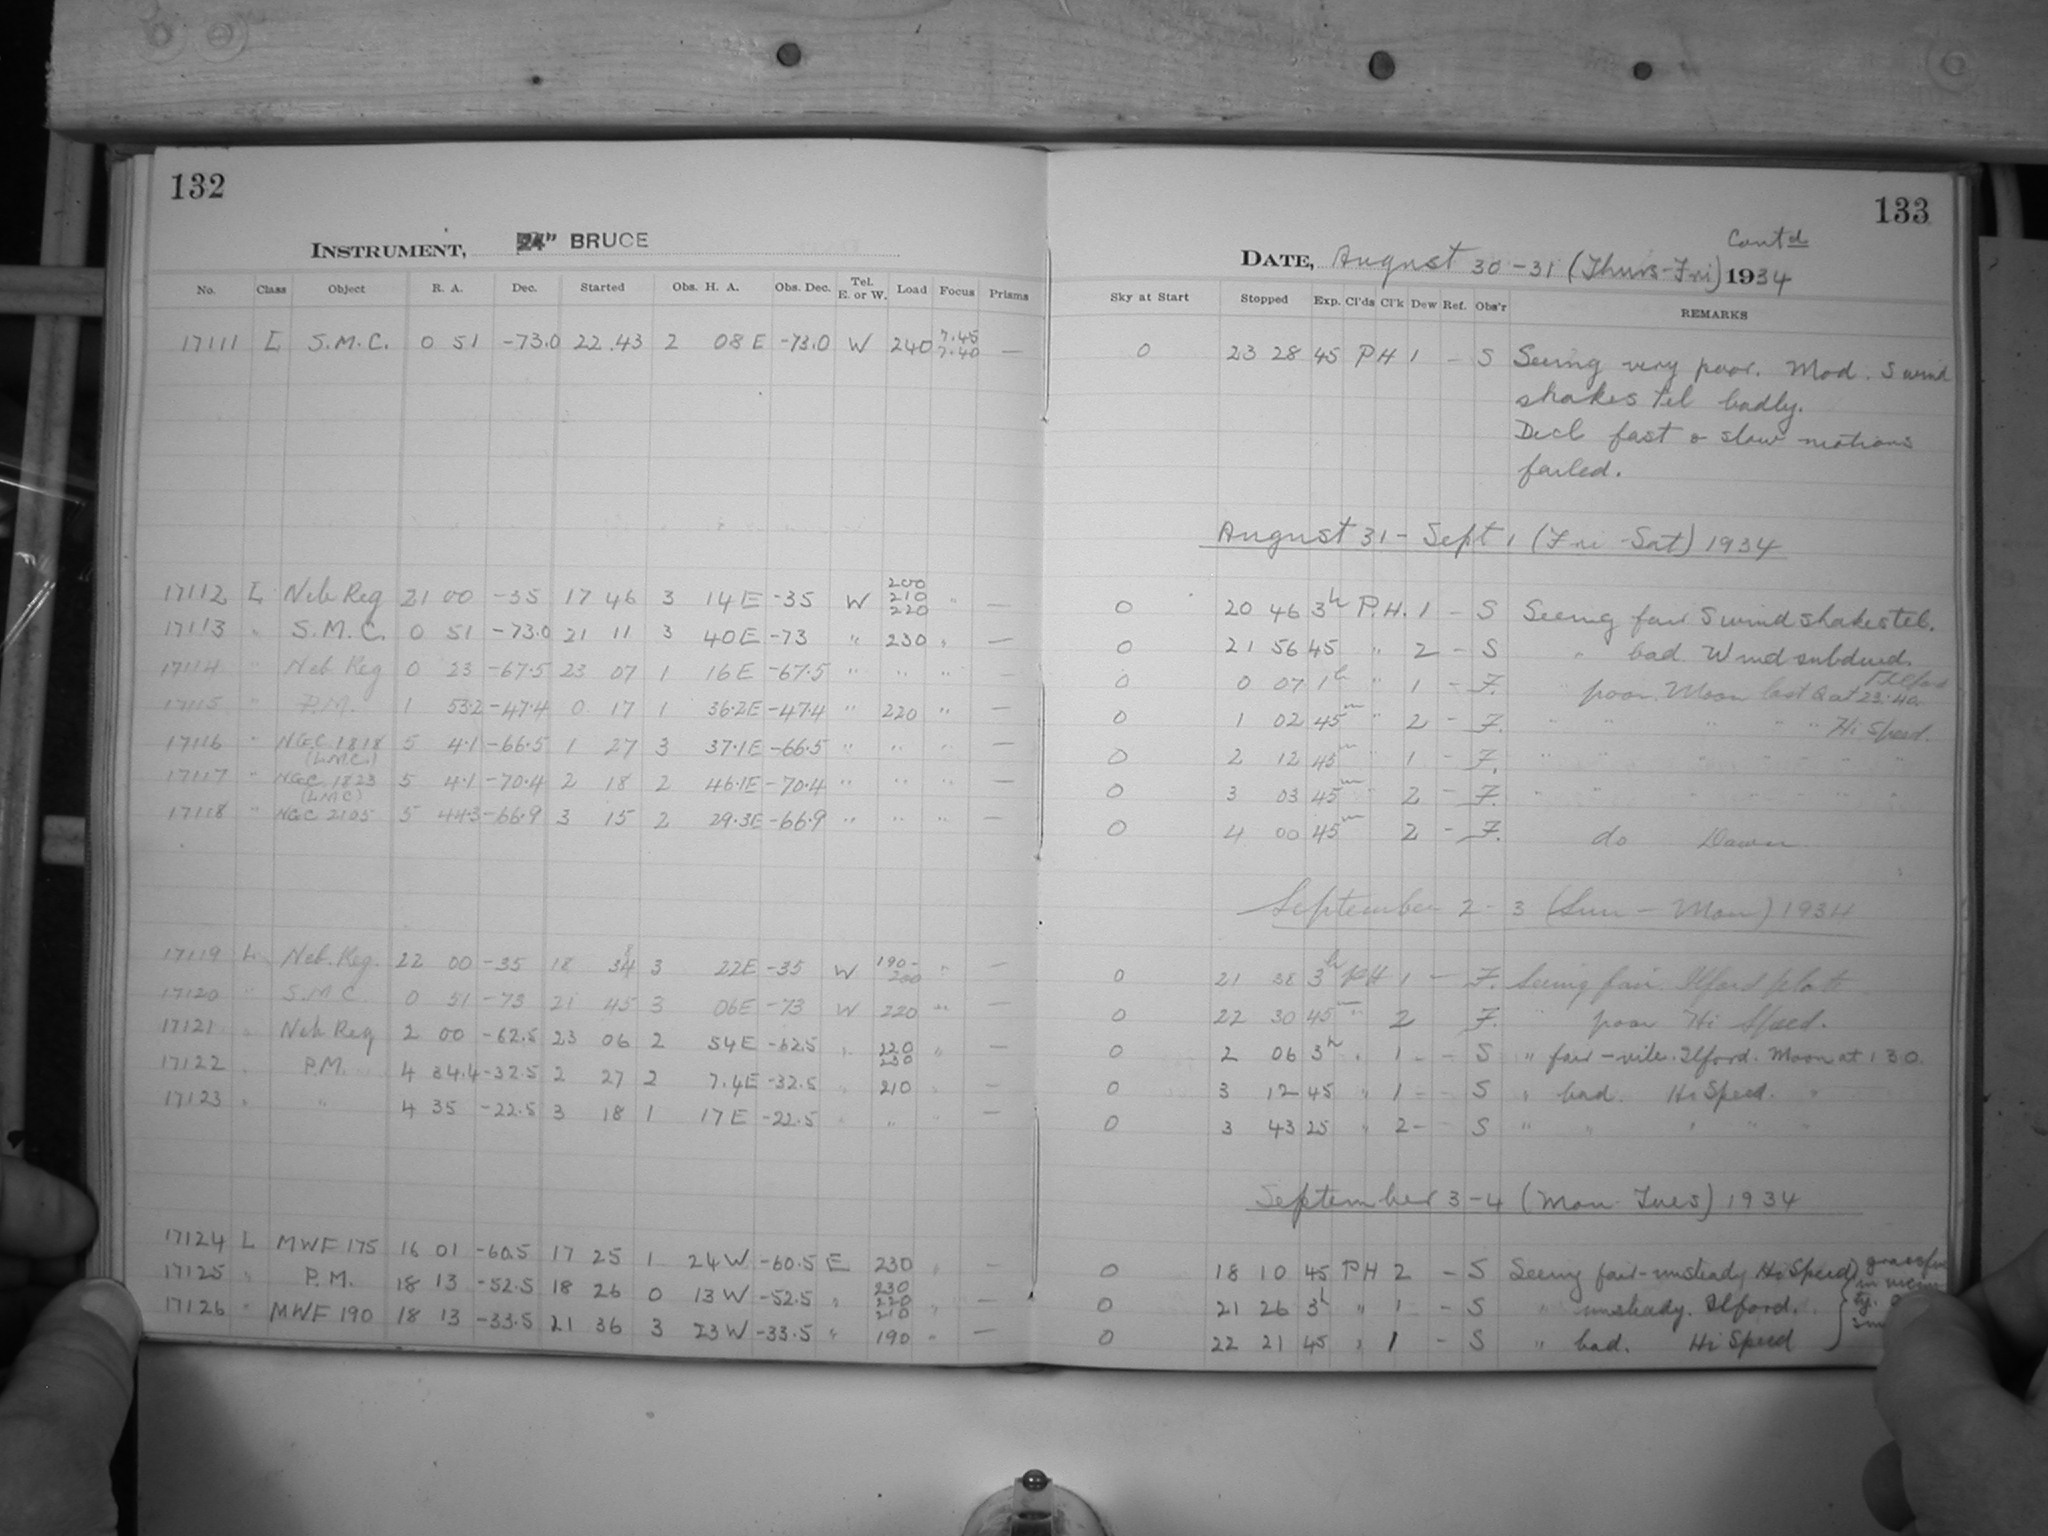 132
INSTRUMENT, 24" BRUCE
No. Class Object R. A. Dec. Started Obs. H. A. Obs. Dec. Tel. E. or W. Load Focus Prisms
17111 L S.M.C. 0 51 -73.0 22.43 2 08 E -73.0 W 240 7.45 7.40 —
17112 L Neb Reg 21 00 -35 17 46 3 14 E -35 W 200 210 220 " —
17113 " S.M.C. 0 51 -73.0 21 11 3 40 E -73 " 230 " —
17114 " Neb Reg 0 23 -67.5 23 07 1 16 E -67.5 " " " —
17115 " P.M. 1 53.2 -47.4 0 17 1 36.2E -47.4 " 220 " —
17116 " NGC 1818 (L.M.C.) 5 4.1 -66.5 1 27 3 37.1E -66.5 " " " —
17117 " NGC 1823 (LMC) 5 4.1 -70.4 2 18 2 46.1E -70.4 " " " —
17118 " NGC 2105 5 44.3 -66.9 3 15 2 29.3E -66.9 " " " —
17119 L Neb. Reg. 22 00 -35 18 38 3 22E -35 W 190-200 " —
17120 " S.M.C. 0 51 -73 21 45 3 06E -73 W 220 " —
17121 " Neb Reg 2 00 -62.5 23 06 2 54E -62.5 " 220 230 " —
17122 " P.M. 4 34.4 -32.5 2 27 2 7.4E -32.5 " 210 " —
17123 " " 4 35 -22.5 3 18 1 17 E -22.5 " " " —
17124 L MWF 175 16 01 -60.5 17 25 1 24 W -60.5 E 230 " —
17125 " P.M. 18 13 -52.5 18 26 0 13 W -52.5 " 230 220 210 " —
17126 " MWF 190 18 13 -33.5 21 36 3 23 W -33.5 " 190 " —
133
Contd
DATE, August 30-31 (Thurs-Fri) 1934
Sky at Start Stopped Exp. Cl'ds Cl'k Dew Ref. Obs'r REMARKS
0 23 28 45 P H 1 - S Seeing very poor. Mod. S wind
shakes tel badly.
Decl fast & slow motions
failed.
August 31 - Sept 1 (Fri-Sat) 1934
0 20 46 3h P.H. 1 - S Seeing fair S wind shakes tel.
0 21 56 45 " 2 - S " bad. Wind subdued.
0 0 07 1h " 1 - F. " poor. Moon last Q at 23.40 Ilford
0 1 02 45m " 2 - F. " " " " Hi Speed.
0 2 12 45m 1 - F. " " " " " "
0 3 03 45m 2 - F. " " " " " "
0 4 00 45m 2 - F. do Dawn
September 2-3 (Sun - Mon) 1934
0 21 38 3h PH 1 - F. Seeing fair. Ilford plate
0 22 30 45m " 2 F. " poor Hi Speed.
0 2 06 3h " 1 - - S " fair - vile. Ilford. Moon at 1 30.
0 3 12 45 " 1 - - S " bad. Hi Speed. "
0 3 43 25 " 2 - - S " " " " "
September 3-4 (Mon-Tues) 1934
0 18 10 45 PH 2 - S Seeing fair-unsteady Hi Speed
0 21 26 3h " 1 - S " unsteady. Ilford.
0 22 21 45 " 1 - S " bad. Hi Speed